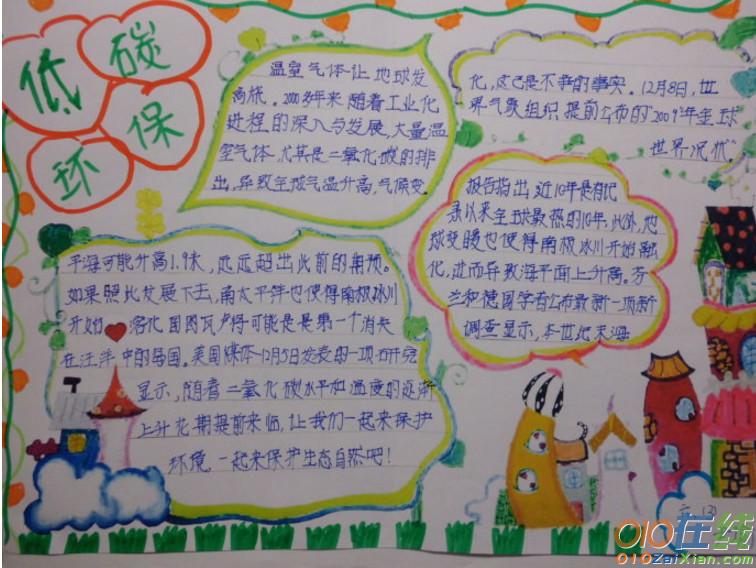 低碳
环保
温室气体让地球发
高烧。200多年来,随着工业化
进程的深入与发展,大量温
室气体,尤其是二氧化碳的排
出,导致全球气温升高,气候变
化,这已是不争的事实。12月8日,世
界气象组织提前公布的“2009年全球
世界况状”
报告指出,近10年是有记
录以来全球最热的10年。此外,地
球变暖也使得南极冰川开始融
化,进而导致海平面上升高。芬
兰和德国学者公布最新一项新
调查显示,本世纪末海
平海可能升高1.9米,远远超出此前的期预。
如果照此发展下去,南太平洋也使得南极冰川
开始 溶化 国图瓦卢将可能是是第一个消失
在汪洋中的岛国。美国媒体12月5日发表的一项研究
显示,随着二氧化碳水平和温度的逐渐
上升花期提前来临,让我们一起来保护
环境,一起来保护生态自然吧!
六(3)
010在线
010ZaiXian.com